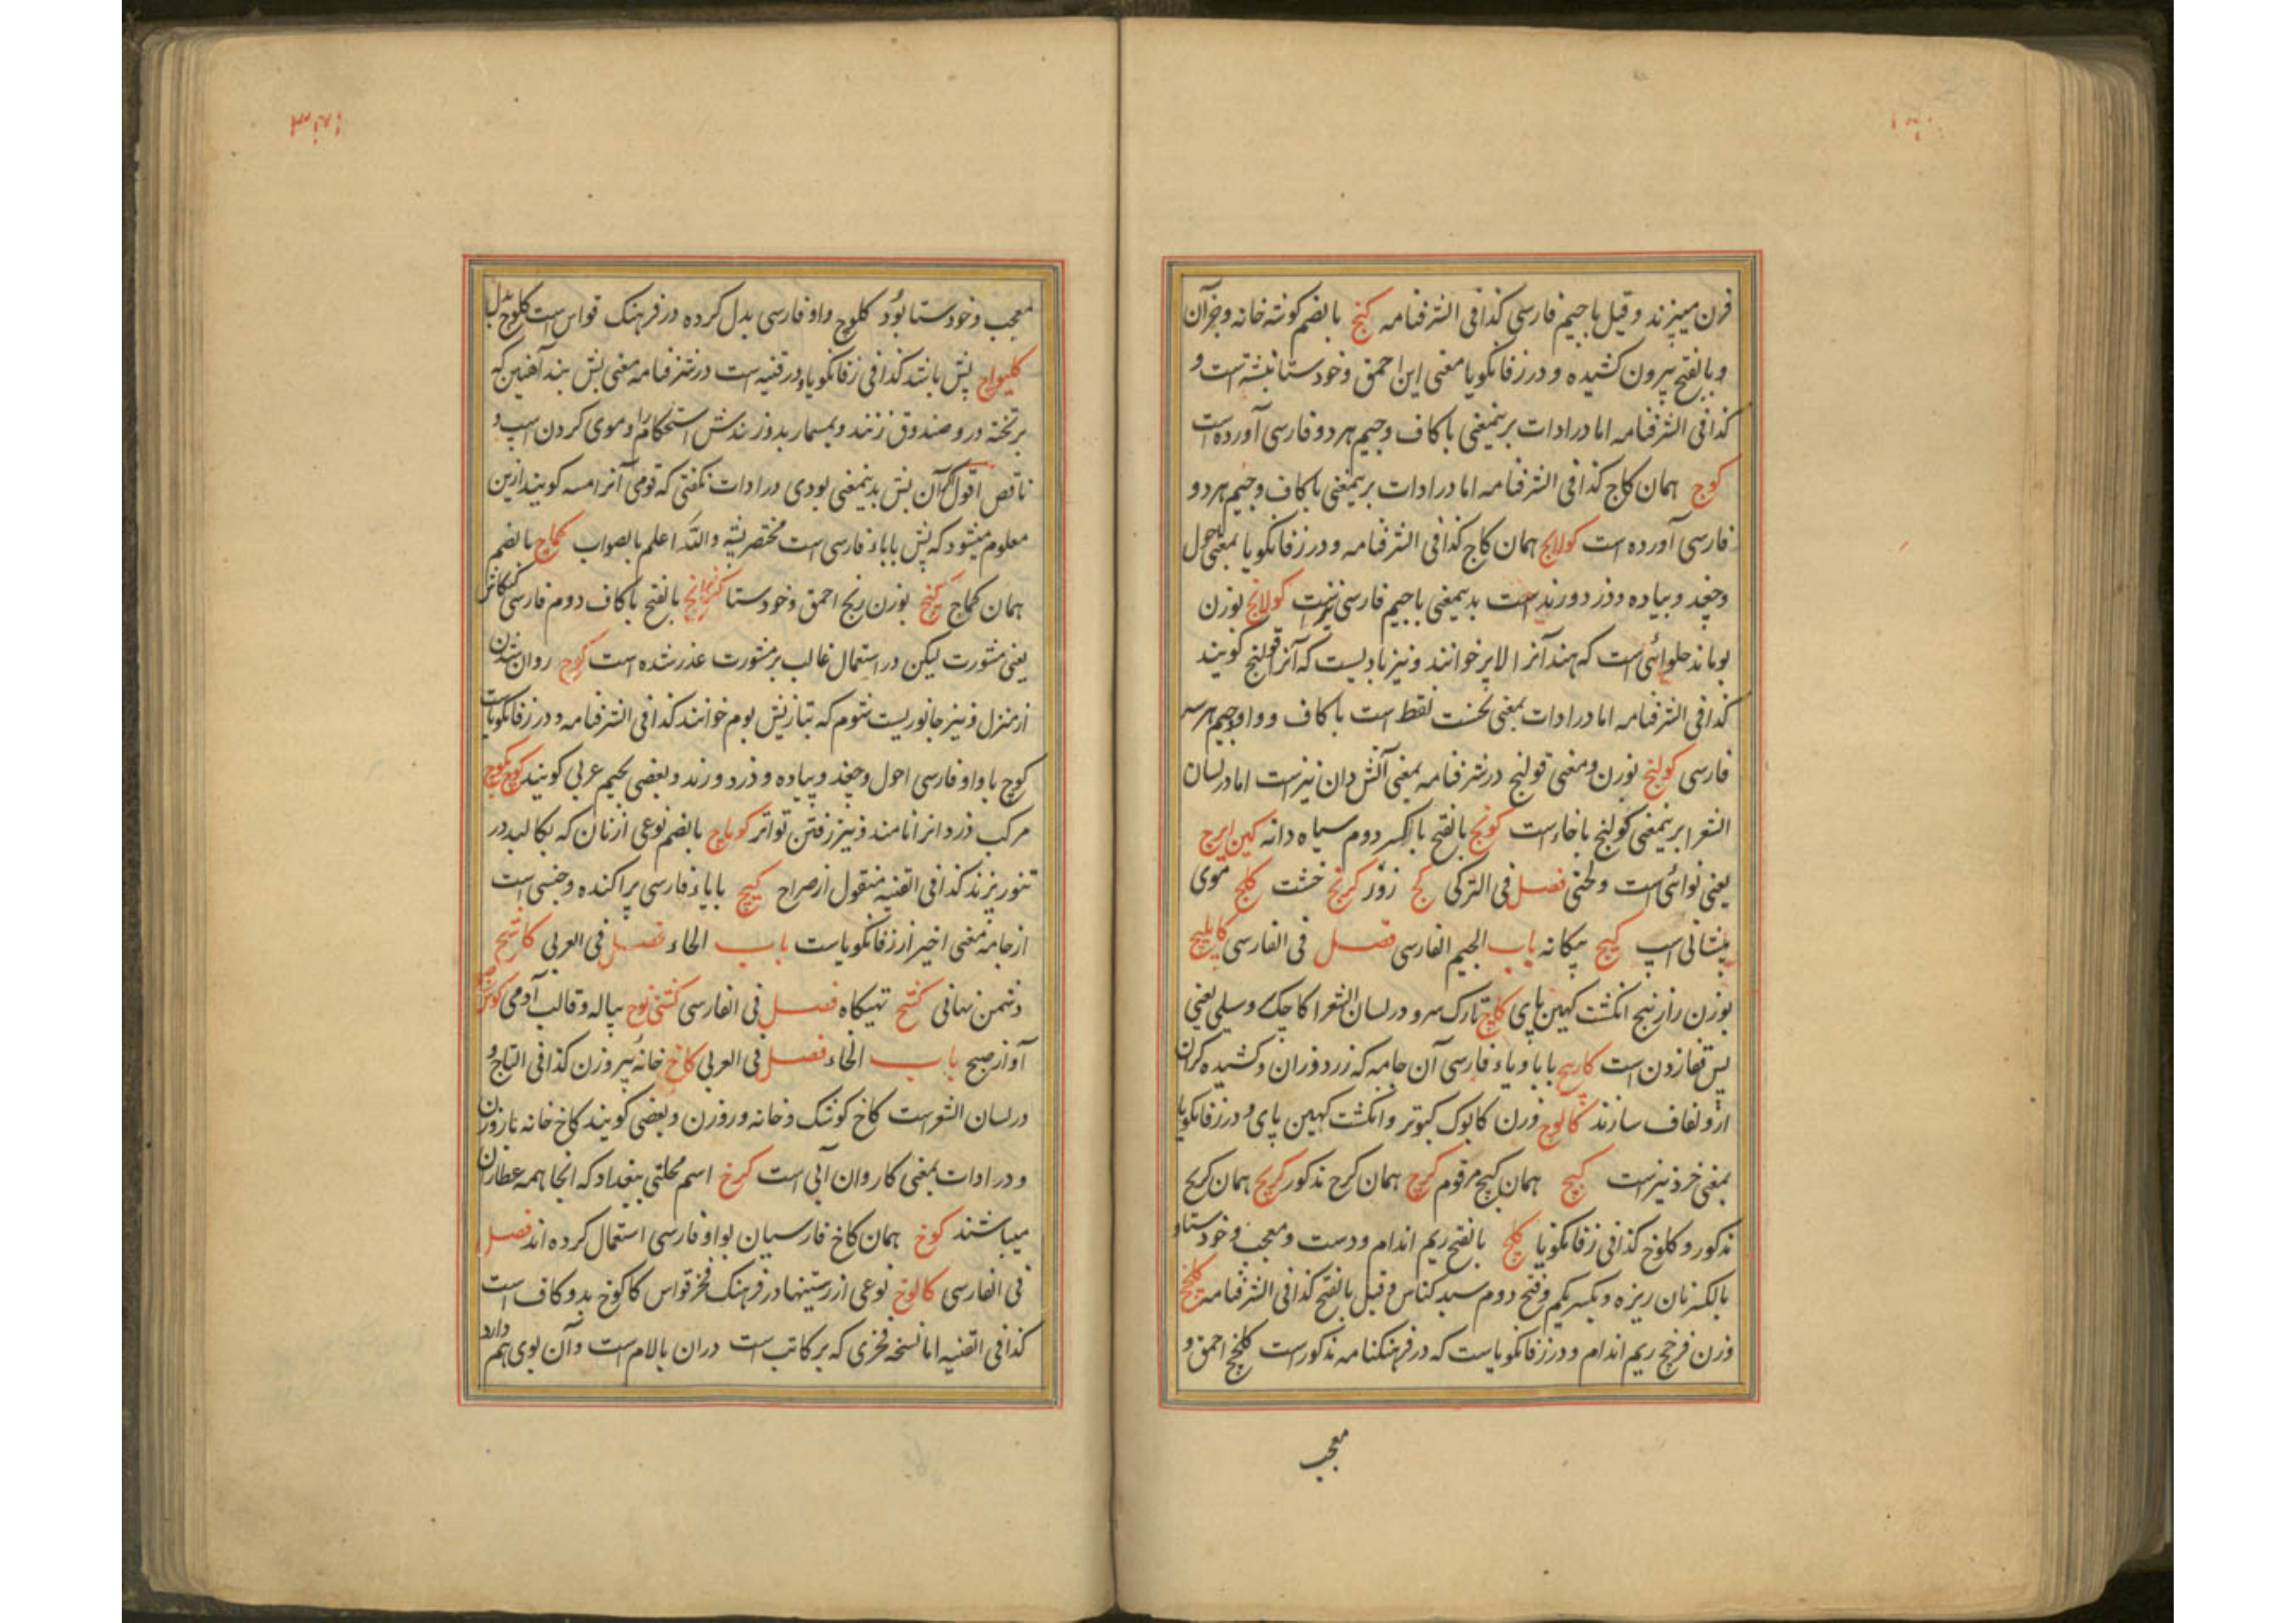 قرن میپزند و قیل باجیم فارسی کذا فی الشرفنامه کنج بالضم کوشه خانه و جز آن
و بالفتح بیرون کشیده و در زفانکویا معنی این احمق و خودستا نبشته است و
کذا فی الشرفنامه اما در ادات برینمعنی با کاف و جیم هر دو فارسی آورده است
کوج همان کاج کذا فی الشرفنامه اما در ادات برینمعنی با کاف و جیم هر دو
فارسی آورده است کولانج همان کاج کذا فی الشرفنامه و در زفانکویا بمعنی احول
وچغد و پیاده و دزد و رند است بدینمعنی باجیم فارسی نیز است کولانج بوزن
بوماند حلوائی است که هند آنرا لابر خوانند و نیز بادیست که آنرا قولنج کویند
کذا فی الشرفنامه اما در ادات بمعنی نخست فقط است با کاف و واو و جیم هر سه
فارسی کولنج بوزن و معنی قولنج در شرفنامه بمعنی آتش دان نیز است اما در لسان
الشعرا برینمعنی کولنخ با خاء است کونج بالفتح بالکسر دوم سیاه دانه کین ایرج
یعنی نوائی است و لحنی فصل فی الترکی کج زوُر کرنج خشت کلج موی
پیشانی اسپ کیج بیکانه باب الجیم الفارسی فصل فی الفارسی کابلیج
بوزن رازبنج انکشت کهین پای کاج تارک سرو در لسان الشعرا کاجک و سیلی یعنی
پس قفا زدن است کاریج با باء و یاء فارسی آن جامه که زرد وزان و کشیده کران
ازو لفاف سازند کالوج وزن کابوک کبوتر و انکشت کهین پای و در زفانکویا
بمعنی خرد نیز است کیج همان کیج مرقوم کرج همان کرج مذکور کریج همان کریج
مذکور و کلوخ کذا فی زفانکویا کلج بالفتح ریم اندام و دست و معجب و خودستا و
بالکسر نان ریزه و بکسر یکم و فتح دوم سبد کناس و قیل بالفتح کذا فی الشرفنامه کلخج
وزن فرخج ریم اندام و در زفانکویا است که در فرهنکنامه مذکور است کلخج احمق و
معجب
معجب و خودستا بوُد کلوج واو فارسی بدل کرده در فرهنک قواس است کلوج بدل
کلیواج پش باشد کذا فی زفانکویا و در قنیه است در شرفنامه معنی بش بند آهنین که
بر تخته در و صندوق زنند و بمسمار بدوزندش استحکام را و موی کردن اسپ و
ناقص اقول اکر آن بش بدینمعنی بودی در ادات نکفتی که قومی آنرا مسه کویند ازین
معلوم میشود که پش با باء فارسی است مختصر پشه والله اعلم بالصواب کماج بالضم
همان کماج کنج بوزن رنج احمق و خودستا بالفتح با کاف دوم فارسی کنکاش
یعنی مشورت لیکن در استعمال غالب بر مشورت عذر شده است کوج روان شدن
از منزل و نیز جانوریست شوم که تبازیش بوم خوانند کذا فی الشرفنامه و در زفانکویا است
کوج با واو فارسی احول و چغد و پیاده و دزد و رند و بعضی بجیم عربی کویند کوج بکوج
مرکب دزد انرا نامند و نیز رفتن تواتر کوماج بالضم نوعی از نان که بکالبد در
تنور پزند کذا فی القنیه منقول از صراح کیج با یاء فارسی پراکنده و جنسی است
از جامه معنی اخیر از زفانکویا است باب الحاء فصل فی العربی کاشح
دشمن نهانی کشح تهیکاه فصل فی الفارسی پیاله و قالب آدمی
آواز صبح باب الخاء فصل فی العربی کاخ خانه بیروزن کذا فی التاج و
در لسان الشعر است کاخ کوشک و خانه و روزن و بعضی کویند کاخ خانه با روزن
و در ادات بمعنی کاروان آبی است کرخ اسم محلتی ببغداد که انجا همه عطاران
میباشند کوخ همان کاخ فارسیان بواو فارسی استعمال کرده اند فصل
فی الفارسی کالوخ نوعی از رستنیها در فرهنک فخر قواس کاکوخ بدو کاف است
کذا فی القنیه اما نسخه فخری که بر کاتب است دران بالام است و آن بوی هم دارد